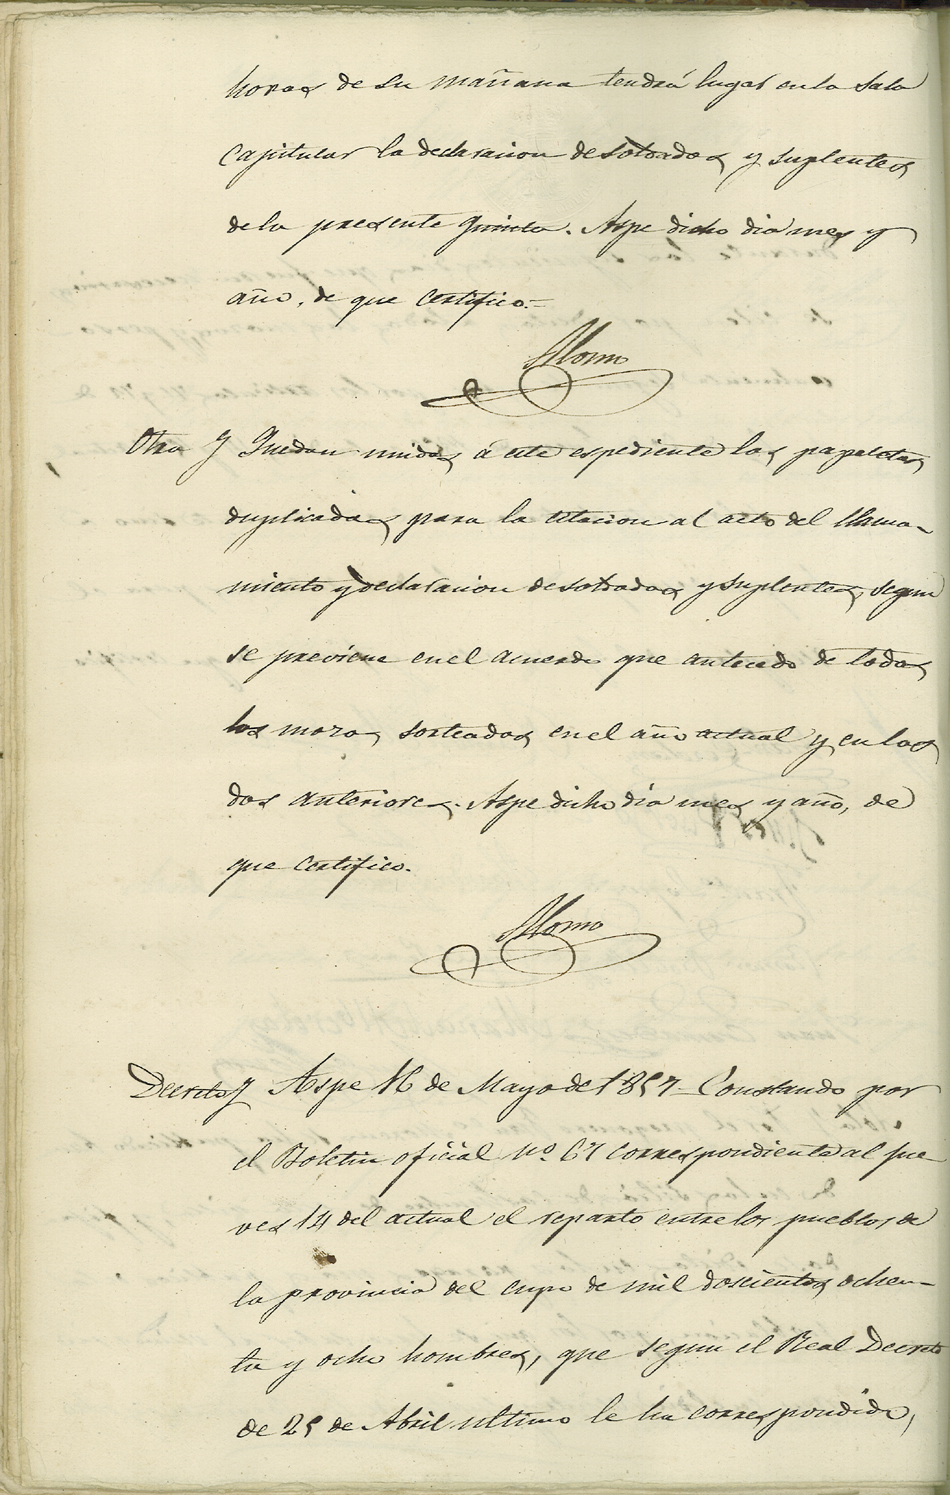 horas de su mañana tendrá lugar en la Sala
Capitular la declaracion de soldados y suplentes
de la presente quinta. Aspe dicho dia mes y
año, de que certifico.=
Otra } Quedan unidas á este espediente las papeletas
duplicadas para la citacion al acto del llama-
miento y declaracion de soldados y suplentes, segun
se previene en el acuerdo que antecede de todos
los mozos sorteados en el año actual y en los
dos anteriores. Aspe dicho dia mes y año, de
que certifico.
Decreto } Aspe 16 de Mayo de 1857 = Constando por
el Boletin oficial nº 67 correspondiente al jue-
ves 14 del actual el reparto entre los pueblos de
la provincia del cupo de mil doscientos ochen-
ta y ocho hombres, que segun el Real Decreto
de 25 de Abril ultimo le ha correspondido,